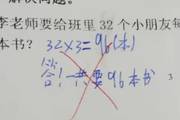 解决问题。
李老师要给班里32个小朋友每
本书？ 32×3=96(本)
答：一共要96本书